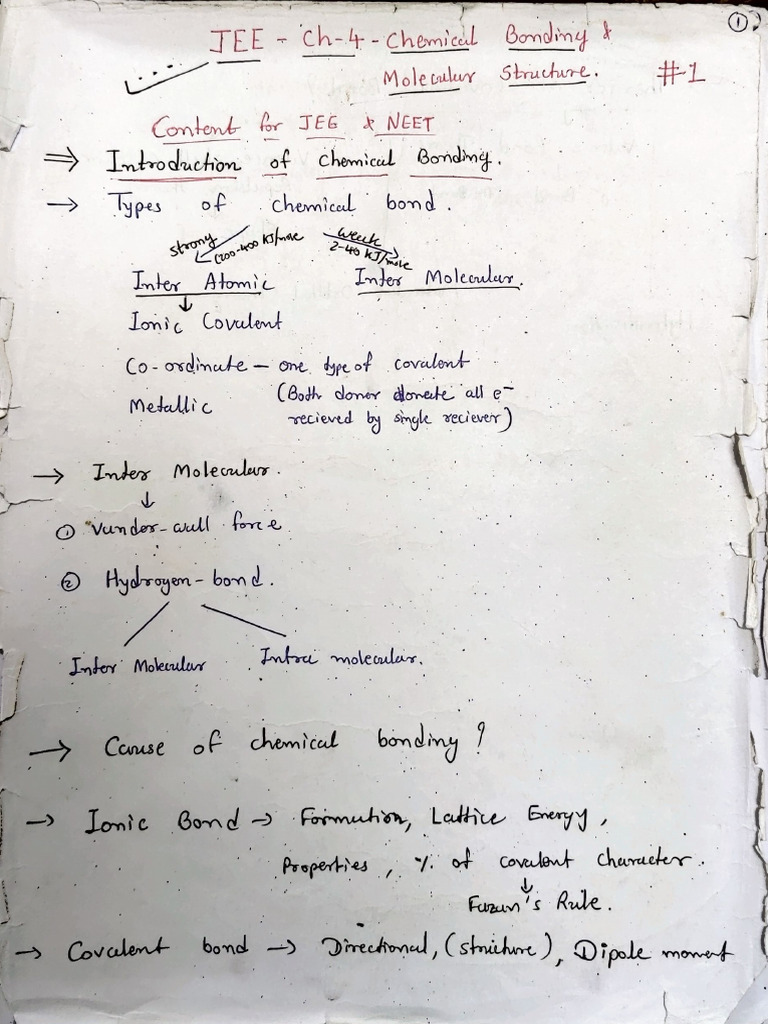 ①
JEE - Ch-4 - Chemical Bonding &
Molecular Structure. #1
Content for JEE & NEET
⇒ Introduction of Chemical Bonding.
→ Types of chemical bond.
strong (200-400 kJ/mole weak 2-40 kJ/mole
Inter Atomic Inter Molecular.
↓
Ionic Covalent
Co-ordinate – one type of covalent
Metallic (Both donor donate all e⁻
recieved by single reciever)
→ Inter Molecular.
↓
① Vander-wall force
② Hydrogen-bond.
Inter Molecular Intra molecular.
→ Cause of chemical bonding?
→ Ionic Bond → Formation, Lattice Energy,
Properties, % of covalent character.
↓
Fazan's Rule.
→ Covalent bond → Directional, (structure), Dipole moment